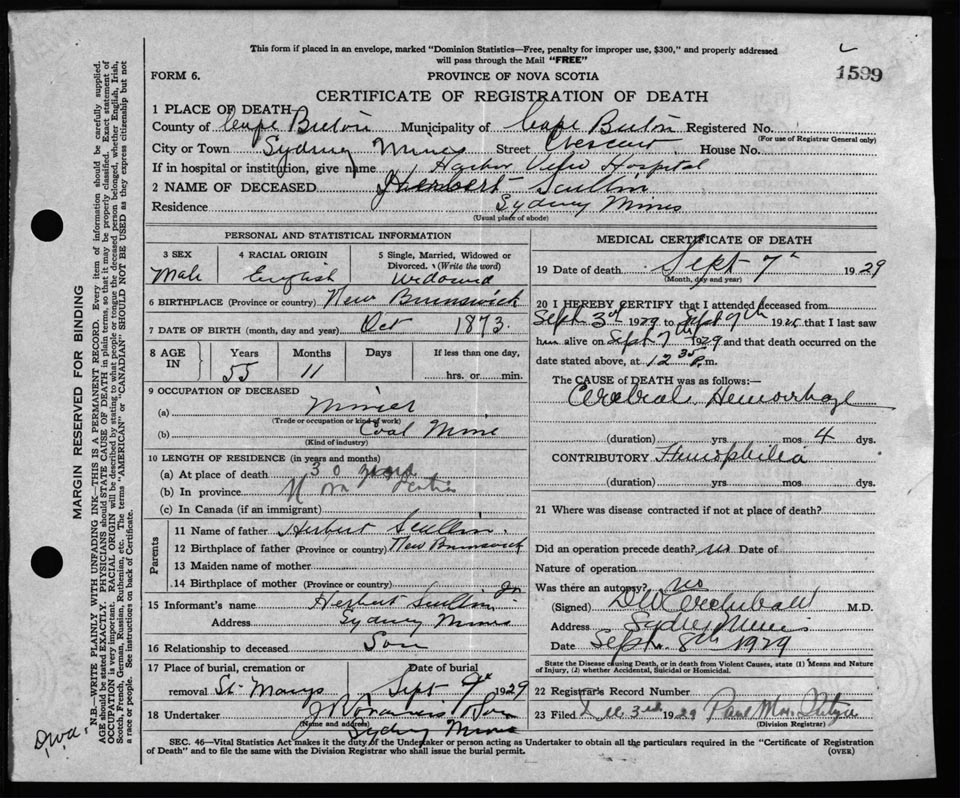 This form if placed in an envelope, marked "Dominion Statistics—Free, penalty for improper use, $300," and properly addressed
will pass through the Mail "FREE"
FORM 6.
PROVINCE OF NOVA SCOTIA
1599
CERTIFICATE OF REGISTRATION OF DEATH
1 PLACE OF DEATH
County of Cape Breton Municipality of Cape Breton Registered No.
(For use of Registrar General only)
City or Town Sydney Mines Street Crescent House No.
If in hospital or institution, give name Harbor View Hospital
2 NAME OF DECEASED Scullin
Residence Sydney Mines
(Usual place of abode)
PERSONAL AND STATISTICAL INFORMATION
3 SEX
Male
4 RACIAL ORIGIN
English
5 Single, Married, Widowed or
Divorced. (Write the word)
Widowed
6 BIRTHPLACE (Province or country) New Brunswick
7 DATE OF BIRTH (month, day and year) Oct 1873.
8 AGE
IN
Years
55
Months
11
Days
If less than one day,
hrs. or min.
9 OCCUPATION OF DECEASED
(a) Miner
(Trade or occupation or kind of work)
(b) Coal Mine
(Kind of industry)
10 LENGTH OF RESIDENCE (in years and months)
(a) At place of death 30 years
(b) In province Nova Scotia
(c) In Canada (if an immigrant)
Parents
11 Name of father Herbert Scullin.
12 Birthplace of father (Province or country) New Brunswick
13 Maiden name of mother
14 Birthplace of mother (Province or country)
15 Informant's name Herbert Scullin Jr
Address Sydney Mines
16 Relationship to deceased Son
17 Place of burial, cremation or
removal St. Marys
Date of burial
Sept 9th 1929
18 Undertaker & Son
(Name and address)
Sydney Mines
MEDICAL CERTIFICATE OF DEATH
19 Date of death Sept 7th 1929
(Month, day and year)
20 I HEREBY CERTIFY that I attended deceased from
Sept 3rd 1929 to Sept 7th 192 that I last saw
him alive on Sept 7th 1929 and that death occurred on the
date stated above, at 12 35 P.m.
The CAUSE OF DEATH was as follows:—
Cerebral Hemorrhage
(duration) yrs. mos. 4 dys.
CONTRIBUTORY Hemophilia
(duration) yrs. mos. dys.
21 Where was disease contracted if not at place of death?
Did an operation precede death? no Date of
Nature of operation
Was there an autopsy? no
(Signed) D W Archibald M.D.
Address Sydney Mines
Date Sept. 8th 1929
State the Disease causing Death, or in death from Violent Causes, state (1) Means and Nature
of Injury, (2) whether Accidental, Suicidal or Homicidal.
22 Registrar's Record Number
23 Filed Dec 3rd 1929 Paul
(Division Registrar)
SEC. 46—Vital Statistics Act makes it the duty of the Undertaker or person acting as Undertaker to obtain all the particulars required in the "Certificate of Registration
of Death" and to file the same with the Division Registrar who shall issue the burial permit.
(OVER)
MARGIN RESERVED FOR BINDING
N.B.—WRITE PLAINLY WITH UNFADING INK—THIS IS A PERMANENT RECORD. Every item of information should be carefully supplied.
AGE should be stated EXACTLY. PHYSICIANS should STATE CAUSE OF DEATH in plain terms, so that it may be properly classified. Exact statement of
OCCUPATION is very important. RACIAL ORIGIN will be described by stating to what people or tongue the deceased person belonged, whether English, Irish,
Scotch, French, German, Russian, Ruthenian, etc. The terms "AMERICAN" or "CANADIAN" SHOULD NOT BE USED as they express citizenship but not
a race or people. See instructions on back of Certificate.